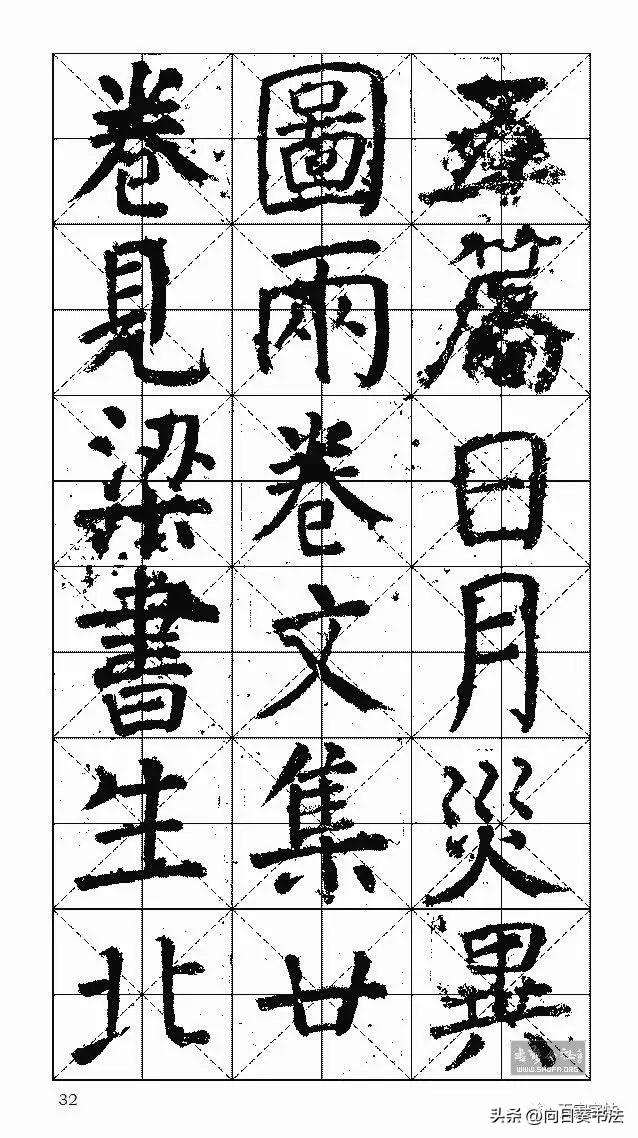 五篇日月災異
圖兩卷文集廿
卷見梁書生北
32
WWW.SHUFA.ORG
头条 @向日葵书法